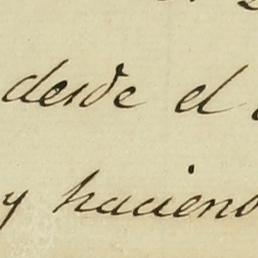 desde el
y haciend